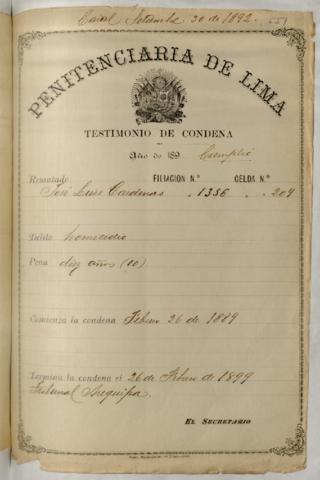 Setiembre 30 de 1892.
PENITENCIARIA DE LIMA
TESTIMONIO DE CONDENA
Año de 189 Cumplió
Rematado FILIACION N.º CELDA N.º
José Luis Cardenas 1356 209
Delito homicidio
Pena diez años (10)
Comienza la condena Febrero 26 de 1889
Termina la condena el 26 de Febrero de 1899
Tribunal Arequipa.
EL SECRETARIO